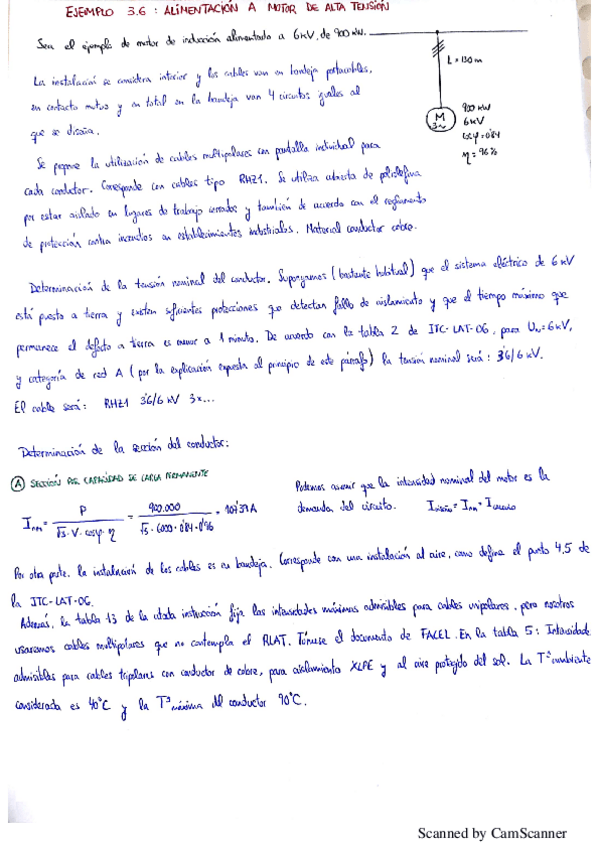 EJEMPLO 3.6: ALIMENTACIÓN A MOTOR DE ALTA TENSIÓN
Sea el ejemplo de motor de inducción alimentado a 6 kV, de 900 kW.
L = 130 m
M
3~
900 kW
6 kV
cosφ = 0'84
η = 96%
La instalación se considera interior y los cables van en bandeja portacables,
en contacto mutuo y en total en la bandeja van 4 circuitos iguales al
que se diseña.
Se propone la utilización de cables multipolares con pantalla individual para
cada conductor. Corresponde con cables tipo RHZ1. Se utiliza cubierta de poliolefina
por estar aislado en lugares de trabajo cerrados y también de acuerdo con el reglamento
de protección contra incendios en establecimientos industriales. Material conductor cobre.
Determinación de la tensión nominal del conductor. Supongamos (bastante habitual) que el sistema eléctrico de 6 kV
está puesto a tierra y existen suficientes protecciones que detectan fallo de aislamiento y que el tiempo máximo que
permanece el defecto a tierra es menor a 1 minuto. De acuerdo con la tabla 2 de ITC-LAT-06, para Un=6kV,
y categoría de red A (por la explicación expuesta al principio de este párrafo) la tensión nominal será: 3'6/6 kV.
El cable será: RHZ1 3'6/6 kV 3x...
Determinación de la sección del conductor:
A SECCIÓN POR CAPACIDAD DE CARGA PERMANENTE
Inm = P / √3 · V · cosφ · η = 900.000 / √3 · 6000 · 0'84 · 0'96 = 107'39 A
Podemos asumir que la intensidad nominal del motor es la
demanda del circuito. Idiseño = Inm = Icálculo
Por otra parte, la instalación de los cables es en bandeja. Corresponde con una instalación al aire, como define el punto 4.5 de
la ITC-LAT-06.
Además, la tabla 13 de la citada instrucción fija las intensidades máximas admisibles para cables unipolares, pero nosotros
usaremos cables multipolares que no contempla el RLAT. Tómese el documento de FACEL. En la tabla 5: Intensidades
admisibles para cables tripolares con conductor de cobre, para aislamiento XLPE y al aire protegido del sol. La Tª ambiente
considerada es 40°C y la Tª máxima del conductor 90°C.
Scanned by CamScanner